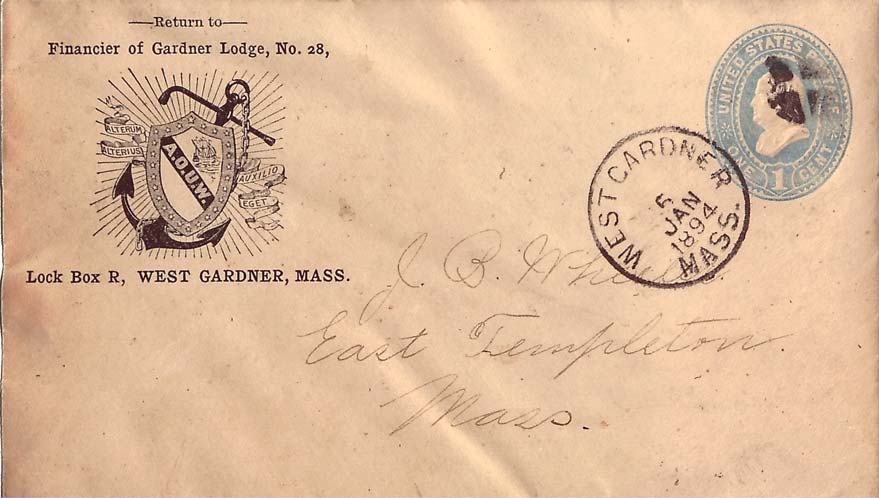 —Return to—
Financier of Gardner Lodge, No. 28,
ALTERUM
ALTERIUS
A.O.U.W.
AUXILIO
EGET
Lock Box R, WEST GARDNER, MASS.
UNITED STATES
ONE 1 CENT
WEST GARDNER
5
JAN
1894
MASS.
J. B.
East Templeton
Mass.